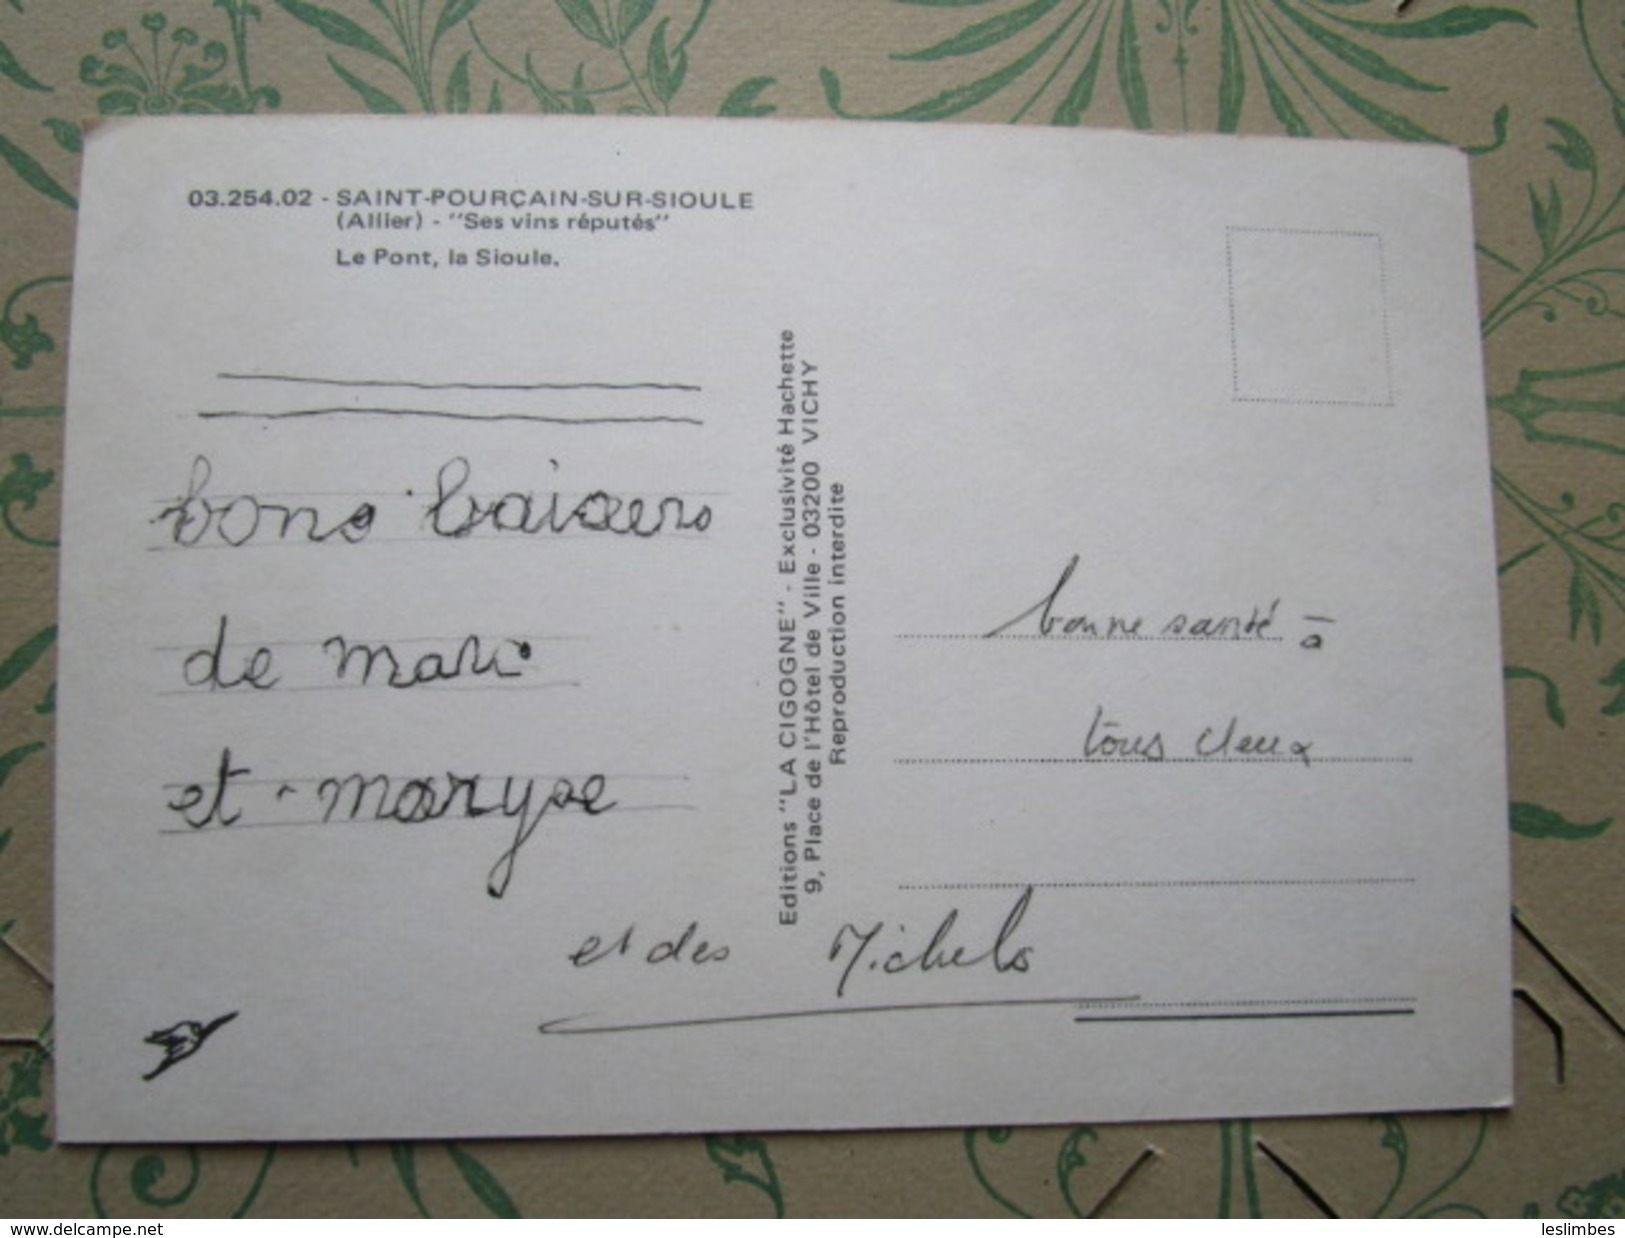 03.254.02 - SAINT-POURÇAIN-SUR-SIOULE
(Allier) - "Ses vins réputés"
Le Pont, la Sioule.
bons baisers
de marc
et maryse
et des Michels
Editions "LA CIGOGNE" - Exclusivité Hachette
9, Place de l'Hôtel de Ville - 03200 VICHY
Reproduction interdite
bonne santé à
tous deux
www.delcampe.net
leslimbes